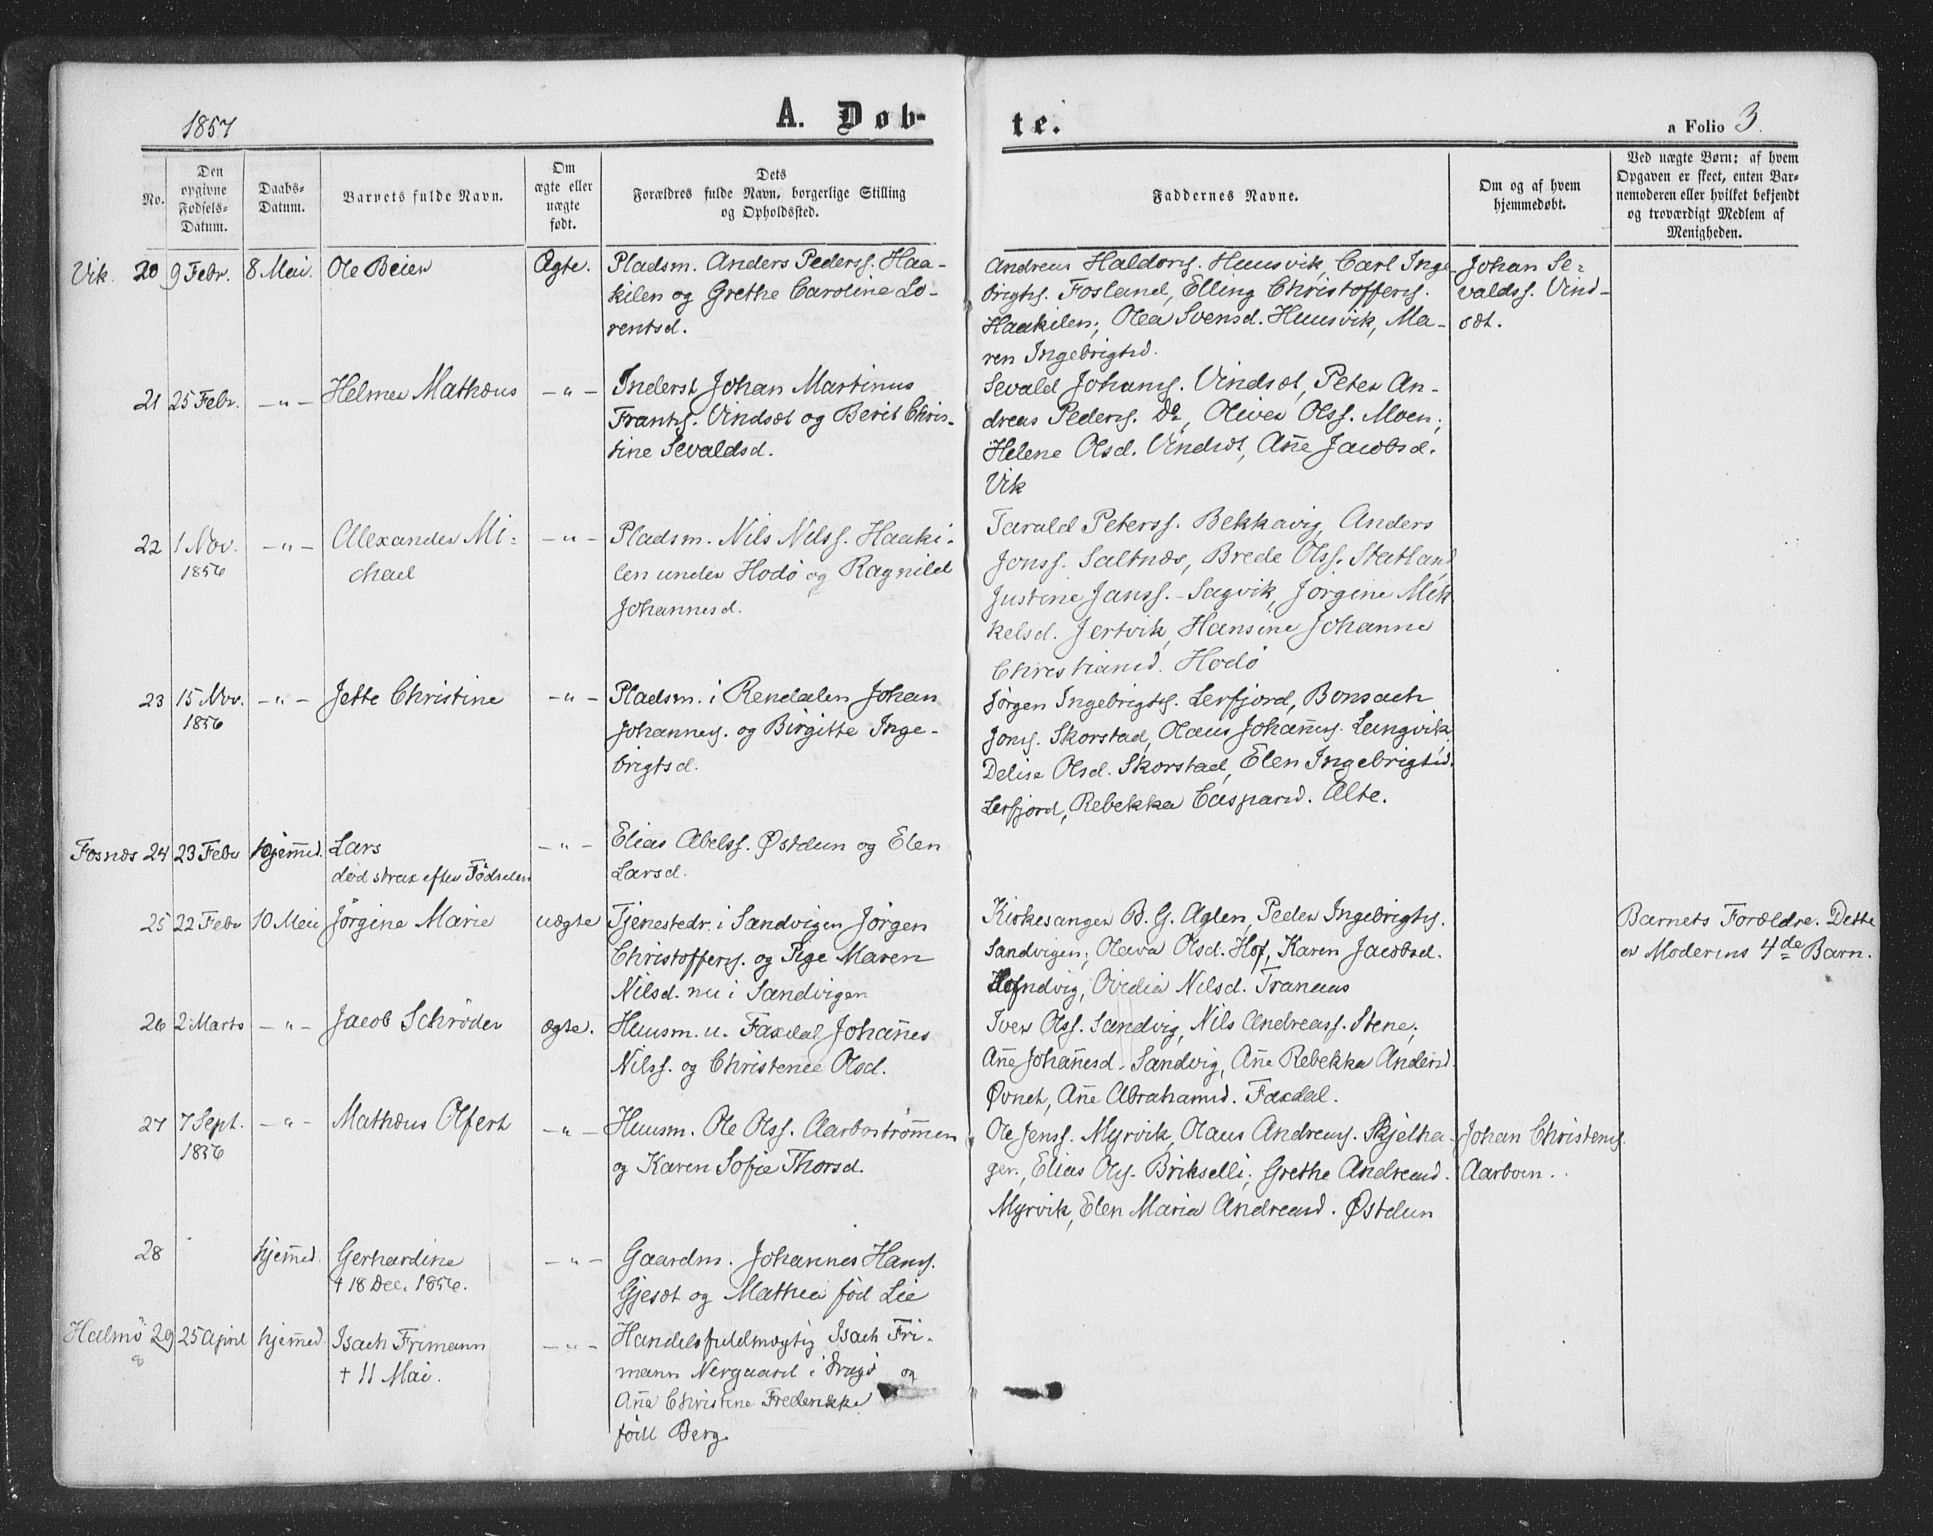 1857
A. Døb-
te.
a Folio 3.
No.
Den opgivne Fødsels-Datum.
Daabs-Datum.
Barnets fulde Navn.
Om ægte eller uægte født.
Dets Forældres fulde Navn, borgerlige Stilling og Opholdssted.
Faddernes Navne.
Om og af hvem hjemmedøbt.
Ved uægte Børn: af hvem Opgaven er skeet, enten Barnemoderen eller hvilket bekjendt og troværdigt Medlem af Menigheden.
Vik. 20 9 Febr. 8 Mai. Ole Beier Ægte. Pladsm. Anders Pederss. Haa-
kilen og Grethe Caroline Lo-
rentsd.
Andreas Haldors. Huusvik, Carl Inge-
brigts. Fosland, Elling Christoffers.
Haakilen; Olea Svensd. Huusvik, Ma-
ren Ingebrigtsd.
Johan Se-
valdss. Vind-
sæt.
21 25 Febr. -"- Helmer Mathæus -"- Inderst Johan Martinus
Frants. Vindsæt og Berit Chris-
tine Sevaldsd.
Sevald Johans. Vindsæt, Peter An-
dreas Peders. Do, Oliver Olss. Moen;
Helene Olsd. Vindsæt, Ane Jacobsd.
Vik
22 1 Nov. 1856 -"- Alexander Mi-
chael
-"- Pladsm. Nils Nilss. Haaki-
len under Hodø og Ragnild
Johannesd.
Tarald Peterss. Bekkavig, Anders
Jonss. Saltnæs, Brede Olss. Statland
Justine Janss. Sagvik, Jørgine Mik-
kelsd. Jertvik, Hansine Johanne
Christiansd. Hodø
23 15 Nov. 1856 -"- Jette Christine -"- Pladsm. i Rendalen Johan
Johannes. og Birgitte Inge-
brigtsd.
Jørgen Ingebrigts. Lerfjord, Bonsach
Jons. Skorstad, Olaus Johanns. Lungvik.
Delise Olsd. Skorstad, Elen Ingebrigtsd.
Lerfjord, Rebekka Caspard. Alte.
Fosnæs 24 23 Febr hjemmed. Lars
død strax efter Fødselen
-"- Elias Abelss. Østdun og Elen
Larsd.
25 22 Febr 10 Mai Jørgine Marie uægte Tjenestedr. i Sandvigen Jørgen
Christoffers. og Pige Maren
Nilsd. nu i Sandvigen
Kirkesanger B. G. Aglen, Peder Ingebrigts.
Sandvigen; Olava Olsd. Hof, Karen Jacobsd.
Ovidia Nilsd. Tranaas
Barnets Forældre. Dette
er Moderens 4de Barn.
26 2 Marts -"- Jacob Schrøder ægte. Huusm. u. Faxdal Johannes
Nilss. og Christence Olsd.
Iver Olss. Sandvig, Nils Andreass. Stene;
Ane Johannesd. Sandvig, Ane Rebekka Andersd.
Øvnet, Ane Abrahamd. Faxdal.
27 7 Sept. 1856 -"- Mathæus Olfert -"- Huusm. Ole Olss. Aarbostrømmen
og Karen Sofie Thorsd.
Ole Jenss. Myrvik, Olaus Andreas. Skjelha-
gen, Elias Ols. Brikselli; Grethe Andreasd.
Myrvik, Elen Maria Andreasd. Østdun
Johan Christens.
Aarboen.
28 hjemmed. Gerhardine
+ 18 Dec. 1856.
-"- Gaardm. Johannes Hans.
Gjesæt og Mathea fød Lie
Halmø 29 25 April hjemmed Isach Frimann
+ 11 Mai.
-"- Handelsfuldmægtig Isach Fri-
mann Nergaard i og
Ane Christine Frederikke
født Berg